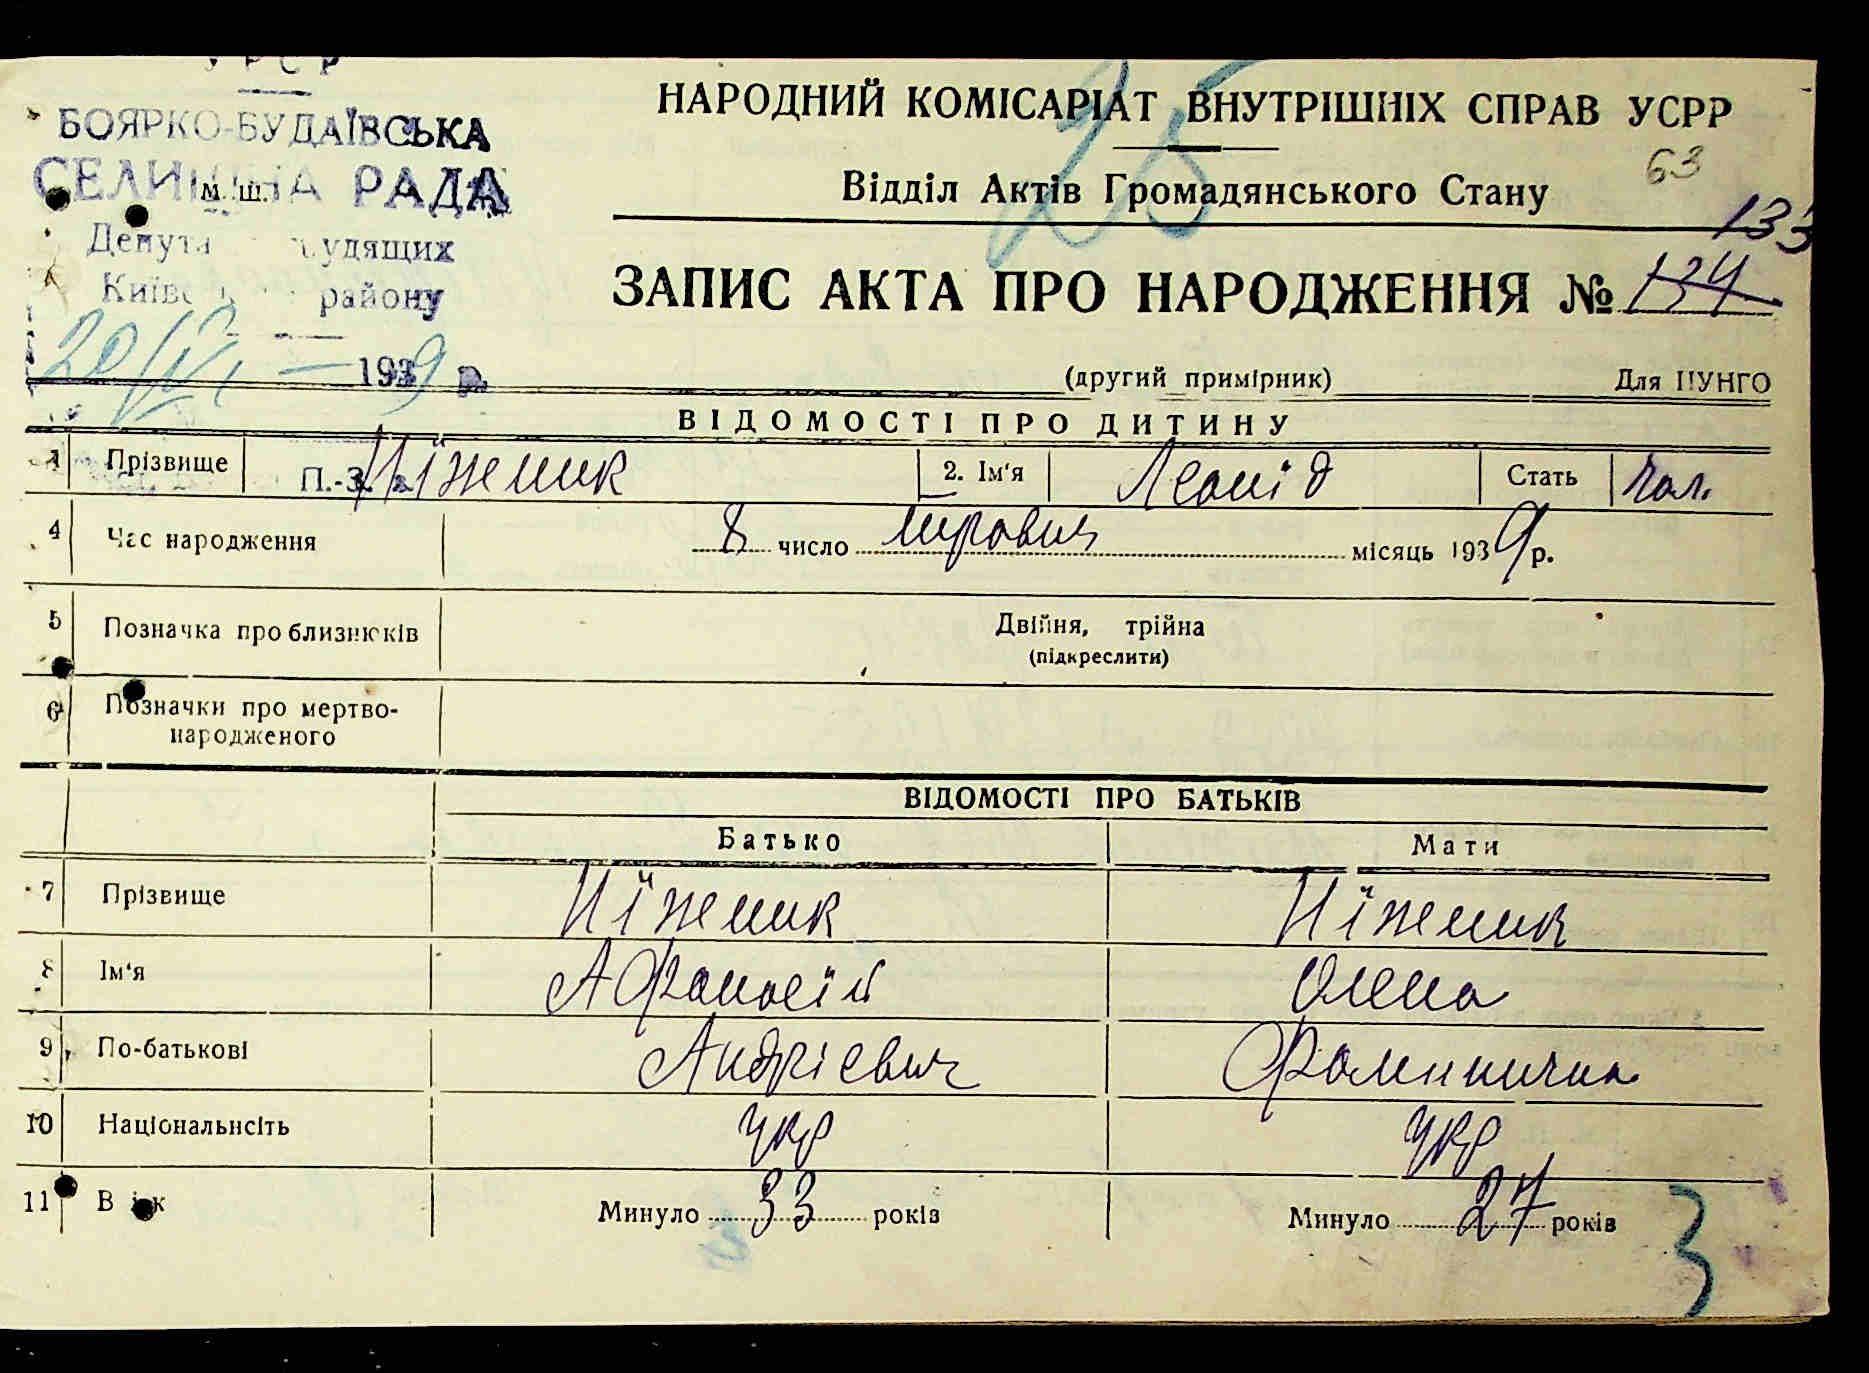 УРСР
БОЯРКО-БУДАЇВСЬКА
СЕЛИЩНА РАДА
м. ш.
Депута трудящих
Київс району
20/VI — 1939 р.
25
НАРОДНИЙ КОМІСАРІАТ ВНУТРІШНІХ СПРАВ УСРР
63
Відділ Актів Громадянського Стану
133
ЗАПИС АКТА ПРО НАРОДЖЕННЯ № 134
(другий примірник) Для ЦУНГО
ВІДОМОСТІ ПРО ДИТИНУ
1 Прізвище П.-З. Ніженик 2. Ім'я Леонід Стать чол.
4 Час народження 8 число червня місяць 1939 р.
5 Позначка про близнюків Двійня, трійна
(підкреслити)
6 Позначки про мертво-
народженого
ВІДОМОСТІ ПРО БАТЬКІВ
Батько Мати
7 Прізвище Ніженик Ніженик
8 Ім'я Афанасій Олена
9 По-батькові Андрієвич
10 Національнсіть укр укр
11 Вік Минуло 33 років Минуло 27 років
3